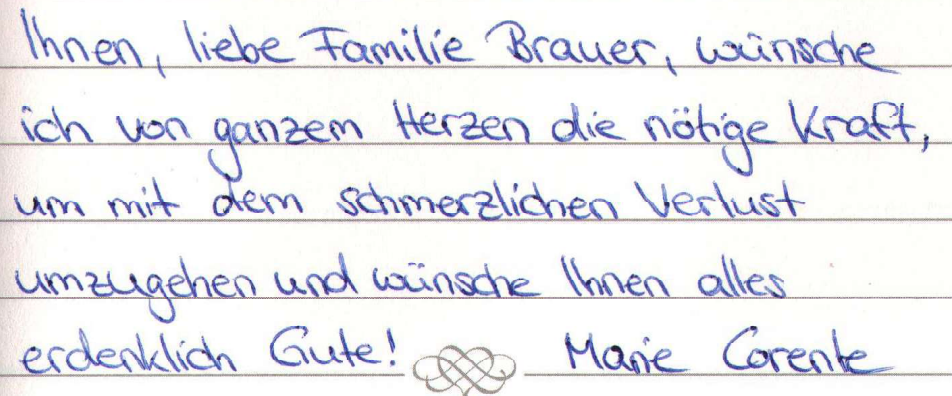 Ihnen, liebe Familie Brauer, wünsche
ich von ganzem Herzen die nötige Kraft,
um mit dem schmerzlichen Verlust
umzugehen und wünsche Ihnen alles
erdenklich Gute! Marie Corente